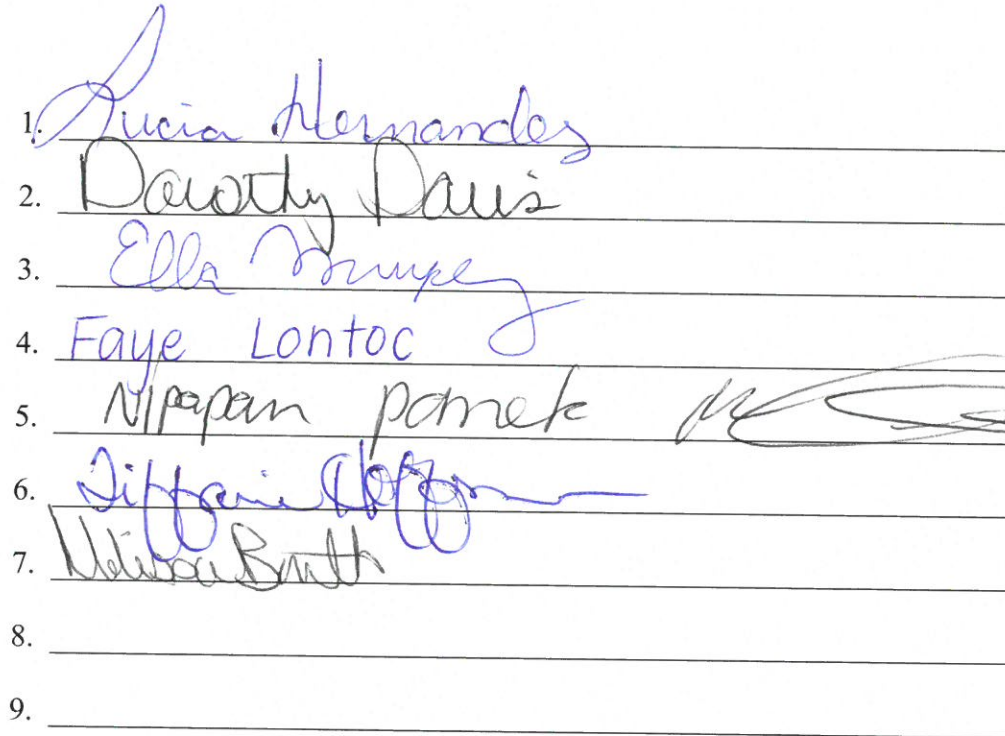 1. Lucia Hernandez
2. Dorothy Davis
3. Ella
4. Faye Lontoc
5. Nipapan pomek
6. Tiffanie Hoffman
7. Melissa
8.
9.